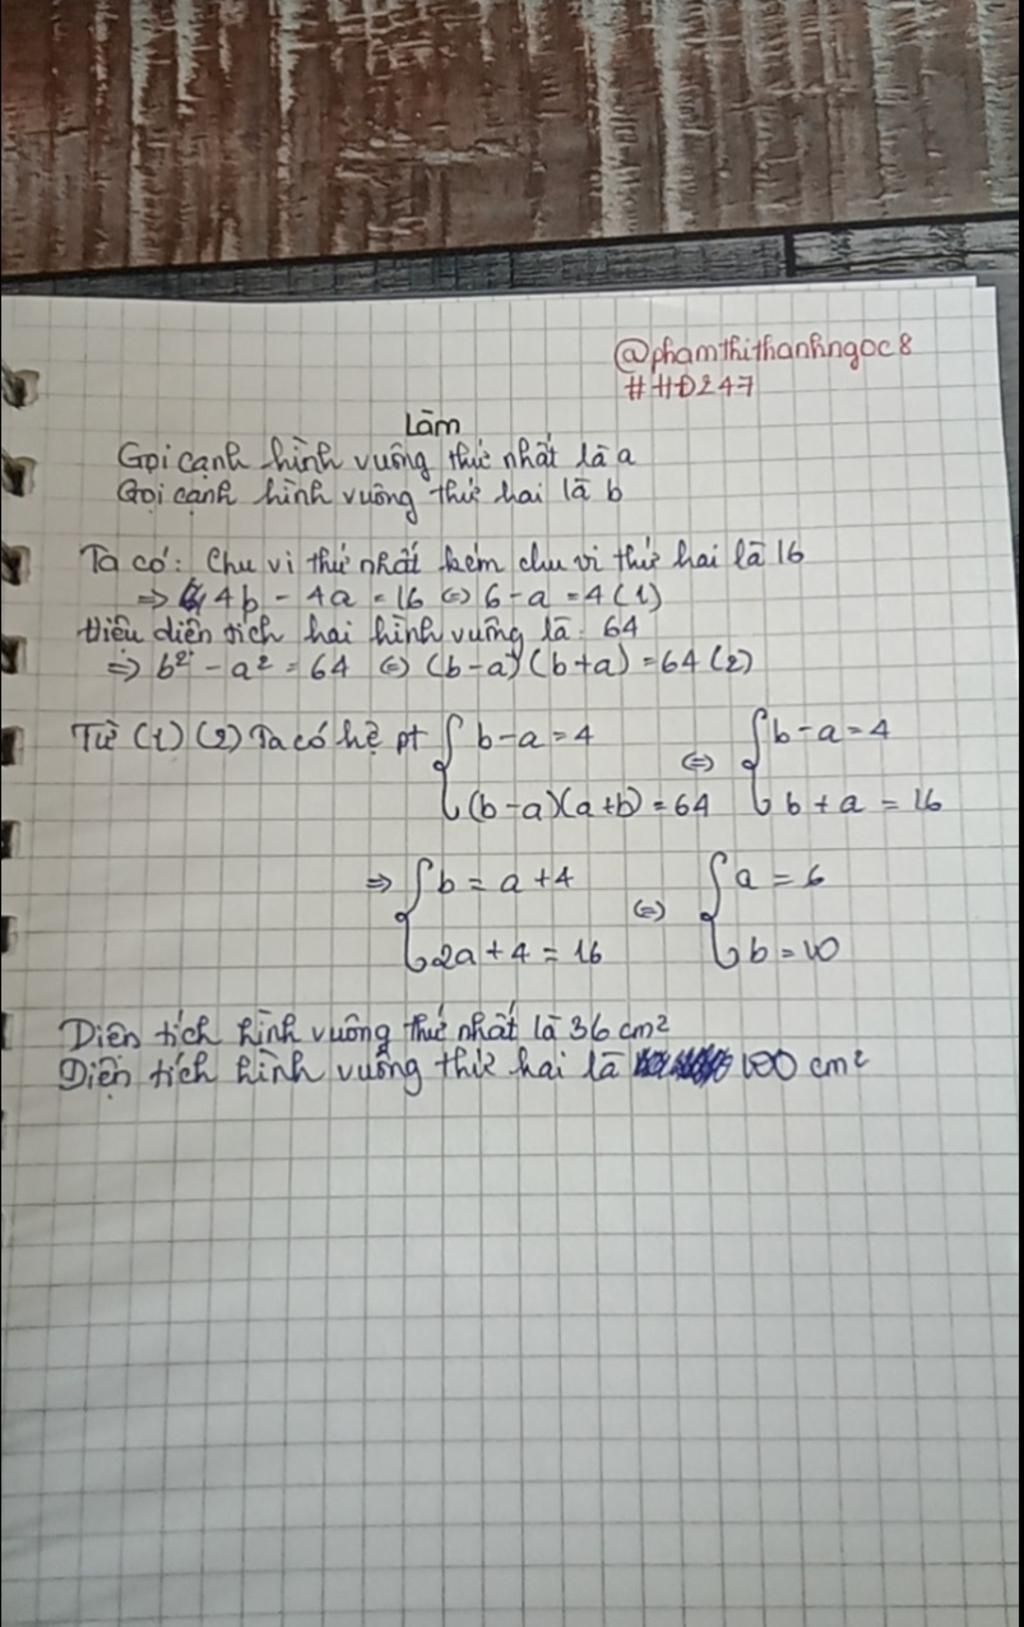 @phamthithanhngoc8
#HD247
Làm
Gọi cạnh hình vuông thứ nhất là a
Gọi cạnh hình vuông thứ hai là b
Ta có: Chu vi thứ nhất kém chu vi thứ hai là 16
=> 4b - 4a = 16 <=> b - a = 4 (1)
Hiệu diện tích hai hình vuông là: 64
=> b² - a² = 64 <=> (b-a)(b+a) = 64 (2)
Từ (1) (2) Ta có hệ pt { b-a = 4 <=> { b-a = 4
(b-a)(a+b) = 64 b + a = 16
=> { b = a + 4 <=> { a = 6
2a + 4 = 16 b = 10
Diện tích hình vuông thứ nhất là 36 cm²
Diện tích hình vuông thứ hai là 100 cm²